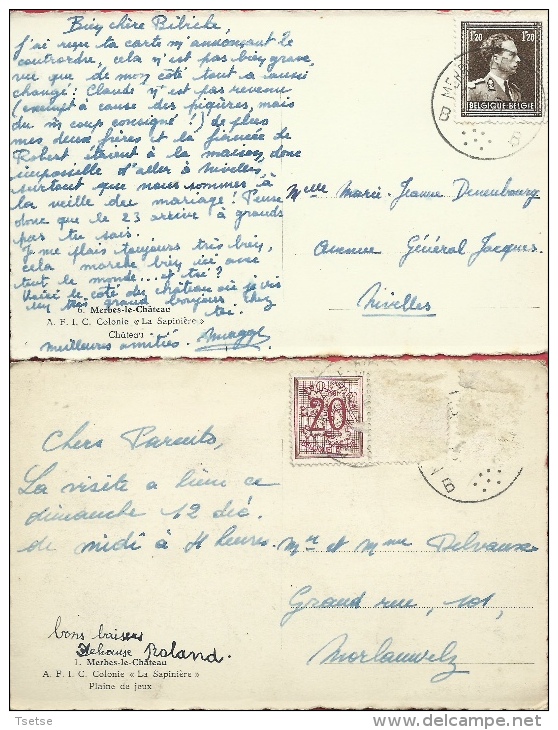 Bien chère Bibiche,
J'ai reçu ta carte m'annonçant le
contrordre, cela n'est pas bien grave,
vu que de mon côté tout a aussi
changé : Claude n'est pas revenu
(exempt à cause des piqûres, mais
du coup consigné !) de plus
mes deux frères et la fiancée de
Robert étaient à la maison, donc
impossible d'aller à Nivelles,
surtout que nous sommes à
la veille du mariage ! Pense
donc que le 23 arrive à grands
pas tu sais.
Je me plais toujours très bien,
cela marche bien ici avec
tout le monde... et toi ?
Voici le côté du château où je vis
un très grand bonjour chez
toi.
6. Merbes-le-Château
A. F. I. C. Colonie « La Sapinière »
Château
meilleures amitiés. Maggy
1.20 1.20
BELGIQUE-BELGIE
B B
Melle Marie-Jeanne Denenbourg
Avenue Général Jacques.
Nivelles
20
B
Chers Parents,
La visite a lieu ce
dimanche 12 dé.
de midi à 4 heures.
bons baisers
Roland.
1. Merbes-le-Château
A. F. I. C. Colonie « La Sapinière »
Plaine de jeux
Mr et Mme Delvaux
Grand rue, 101,
Morlanwelz
Tsetse
www.delcampe.net